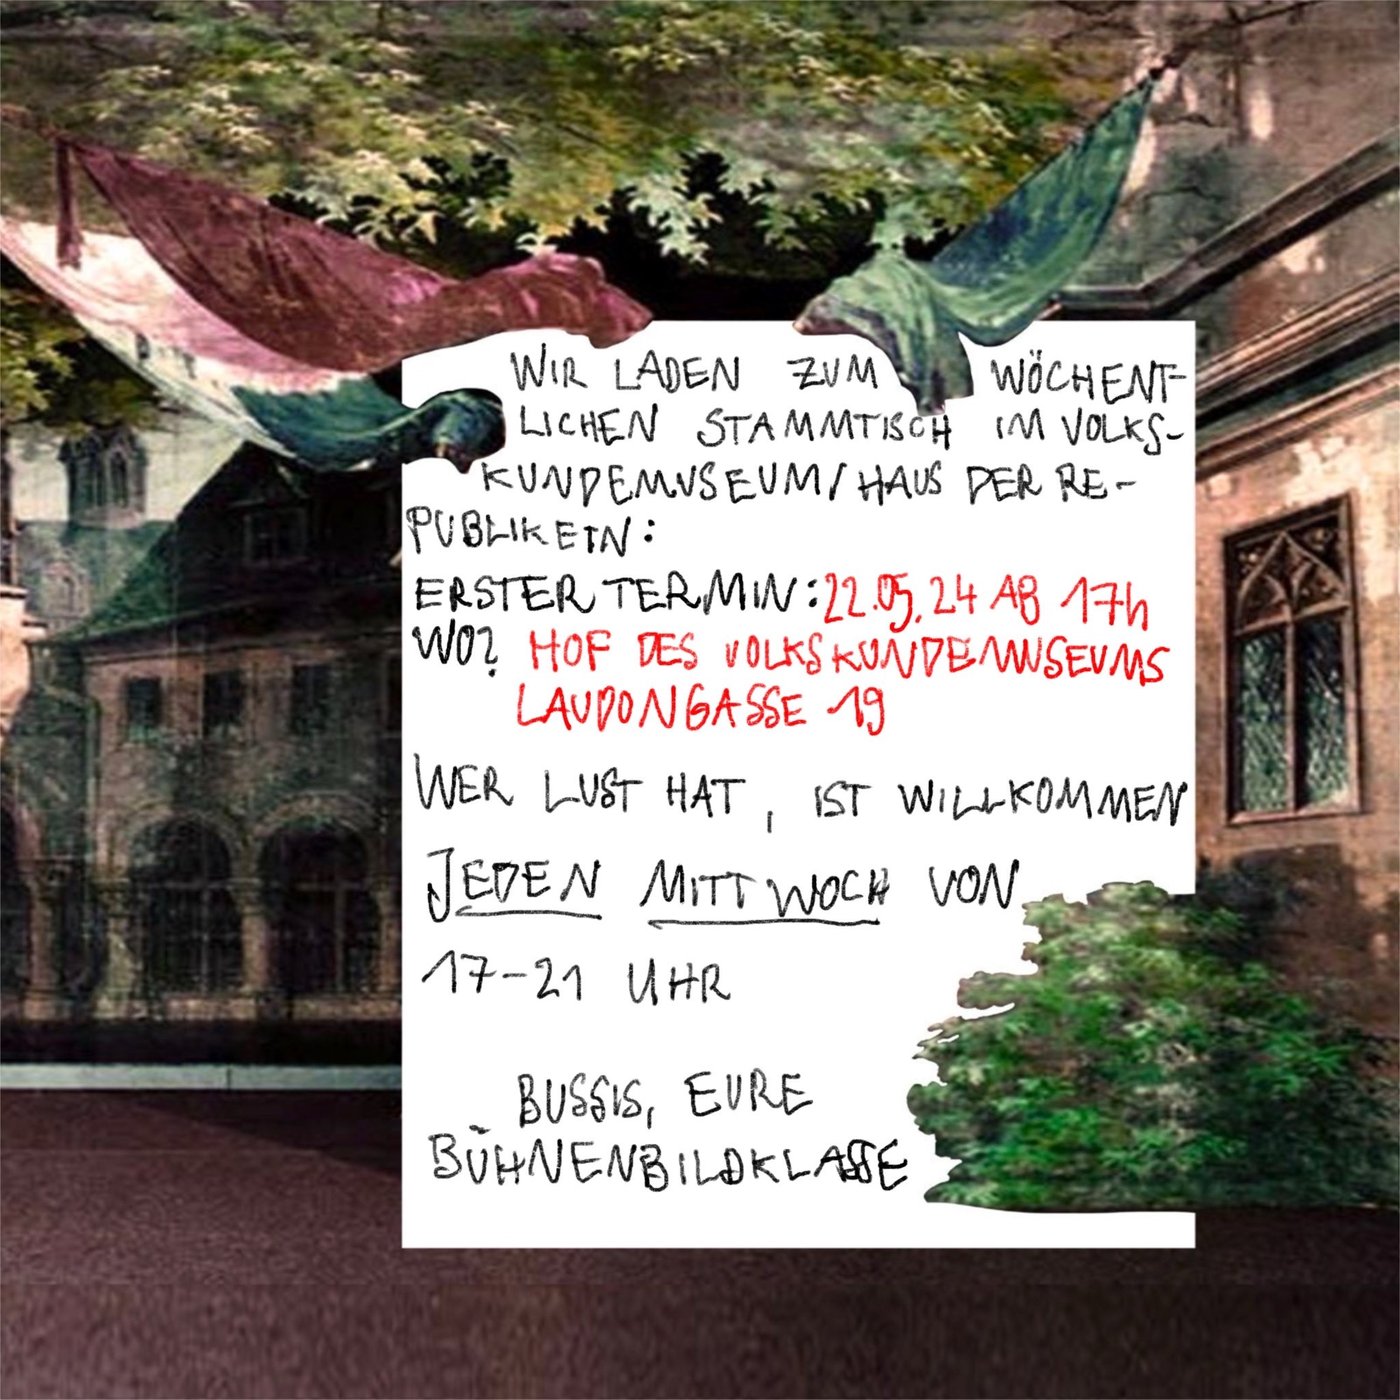 WIR LADEN ZUM WÖCHENT-
LICHEN STAMMTISCH IM VOLKS-
KUNDEMUSEUM/HAUS DER RE-
PUBLIK EIN:
ERSTER TERMIN: 22.05.24 AB 17h
WO? HOF DES VOLKSKUNDEMUSEUMS
LAUDONGASSE 19
WER LUST HAT, IST WILLKOMMEN
JEDEN MITTWOCH VON
17-21 UHR
BUSSIS, EURE
BÜHNENBILDKLASSE